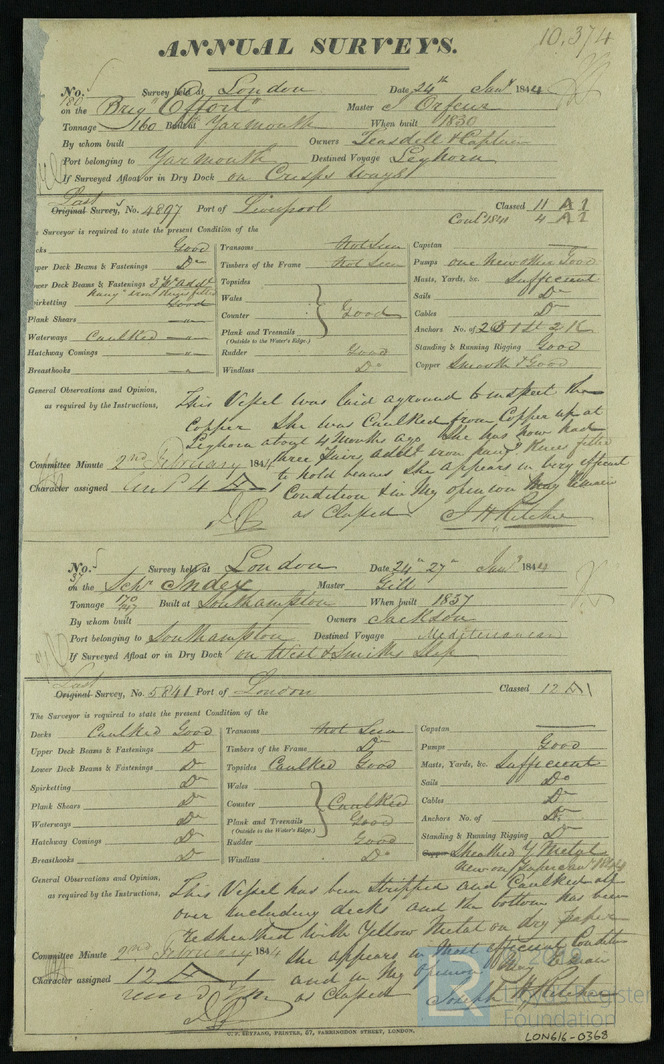 10,374
ANNUAL SURVEYS.
No. 180 Survey held at London Date 24th Jany 1844
on the Brig "Effort" Master J Orfeur
Tonnage 160 Built at Yarmouth When built 1830
By whom built Owners Teasdell & Captain
Port belonging to Yarmouth Destined Voyage Leghorn
If Surveyed Afloat or in Dry Dock on Crisps ways
Last
Original Survey, No. 4897 Port of Liverpool Classed 11 A 1
Contd 1841 4 A 1
The Surveyor is required to state the present Condition of the
Decks Good
Upper Deck Beams & Fastenings Do
Lower Deck Beams & Fastenings 3 Prs addl
hang iron knees fitted
Spirketting Good
Plank Shears "
Waterways Caulked "
Hatchway Comings "
Breasthooks "
Transoms Not Seen
Timbers of the Frame Not Seen
Topsides
Wales
Counter Good
Plank and Treenails
(Outside to the Water's Edge.)
Rudder Good
Windlass Do
Capstan
Pumps one New other Good
Masts, Yards, &c. Sufficient
Sails Do
Cables Do
Anchors No. of 2 B 1 St 2 K
Standing & Running Rigging Good
Copper Smooth & Good
General Observations and Opinion,
as required by the Instructions,
This Vessel was laid aground to inspect the
Copper She was Caulked from Copper up at
Leghorn about 4 Months ago She has now had
three pairs, addl iron hangg Knees fitted
to hold beams She appears in very efficient
Condition & in My opinion May Remain
as Classed J H Ritchie
Committee Minute 2nd February 1844
Character assigned 4 A 1
No. 5 Survey held at London Date 24th 27th Jany 1844
on the Schr Index Master Gill
Tonnage 170/147 Built at Southampton When built 1837
By whom built Owners Jackson
Port belonging to Southampton Destined Voyage Mediterranean
If Surveyed Afloat or in Dry Dock on West & Smiths Slip
Last
Original Survey, No. 5841 Port of London Classed 12 A 1
The Surveyor is required to state the present Condition of the
Decks Caulked Good
Upper Deck Beams & Fastenings Do
Lower Deck Beams & Fastenings Do
Spirketting Do
Plank Shears Do
Waterways Do
Hatchway Comings Do
Breasthooks Do
Transoms Not Seen
Timbers of the Frame Do
Topsides Caulked Good
Wales
Counter Caulked
Plank and Treenails Good
(Outside to the Water's Edge.)
Rudder Good
Windlass Do
Capstan
Pumps Good
Masts, Yards, &c. Sufficient
Sails Do
Cables Do
Anchors No. of Do
Standing & Running Rigging Do
Copper Sheathed Y Metal
New on Paper
General Observations and Opinion,
as required by the Instructions,
This Vessel has been stripped and Caulked all
over including decks and the bottom has been
Resheathed with Yellow Metal on dry paper
she appears in Most efficient Condition
and in My opinion May Remain
as Classed Joseph H Ritchie
Committee Minute 2nd February 1844
Character assigned 12 A 1
V. P. SEYFANG, PRINTER, 57, FARRINGDON STREET, LONDON.
LR
Lloyd's Register
Foundation
LON616-0368